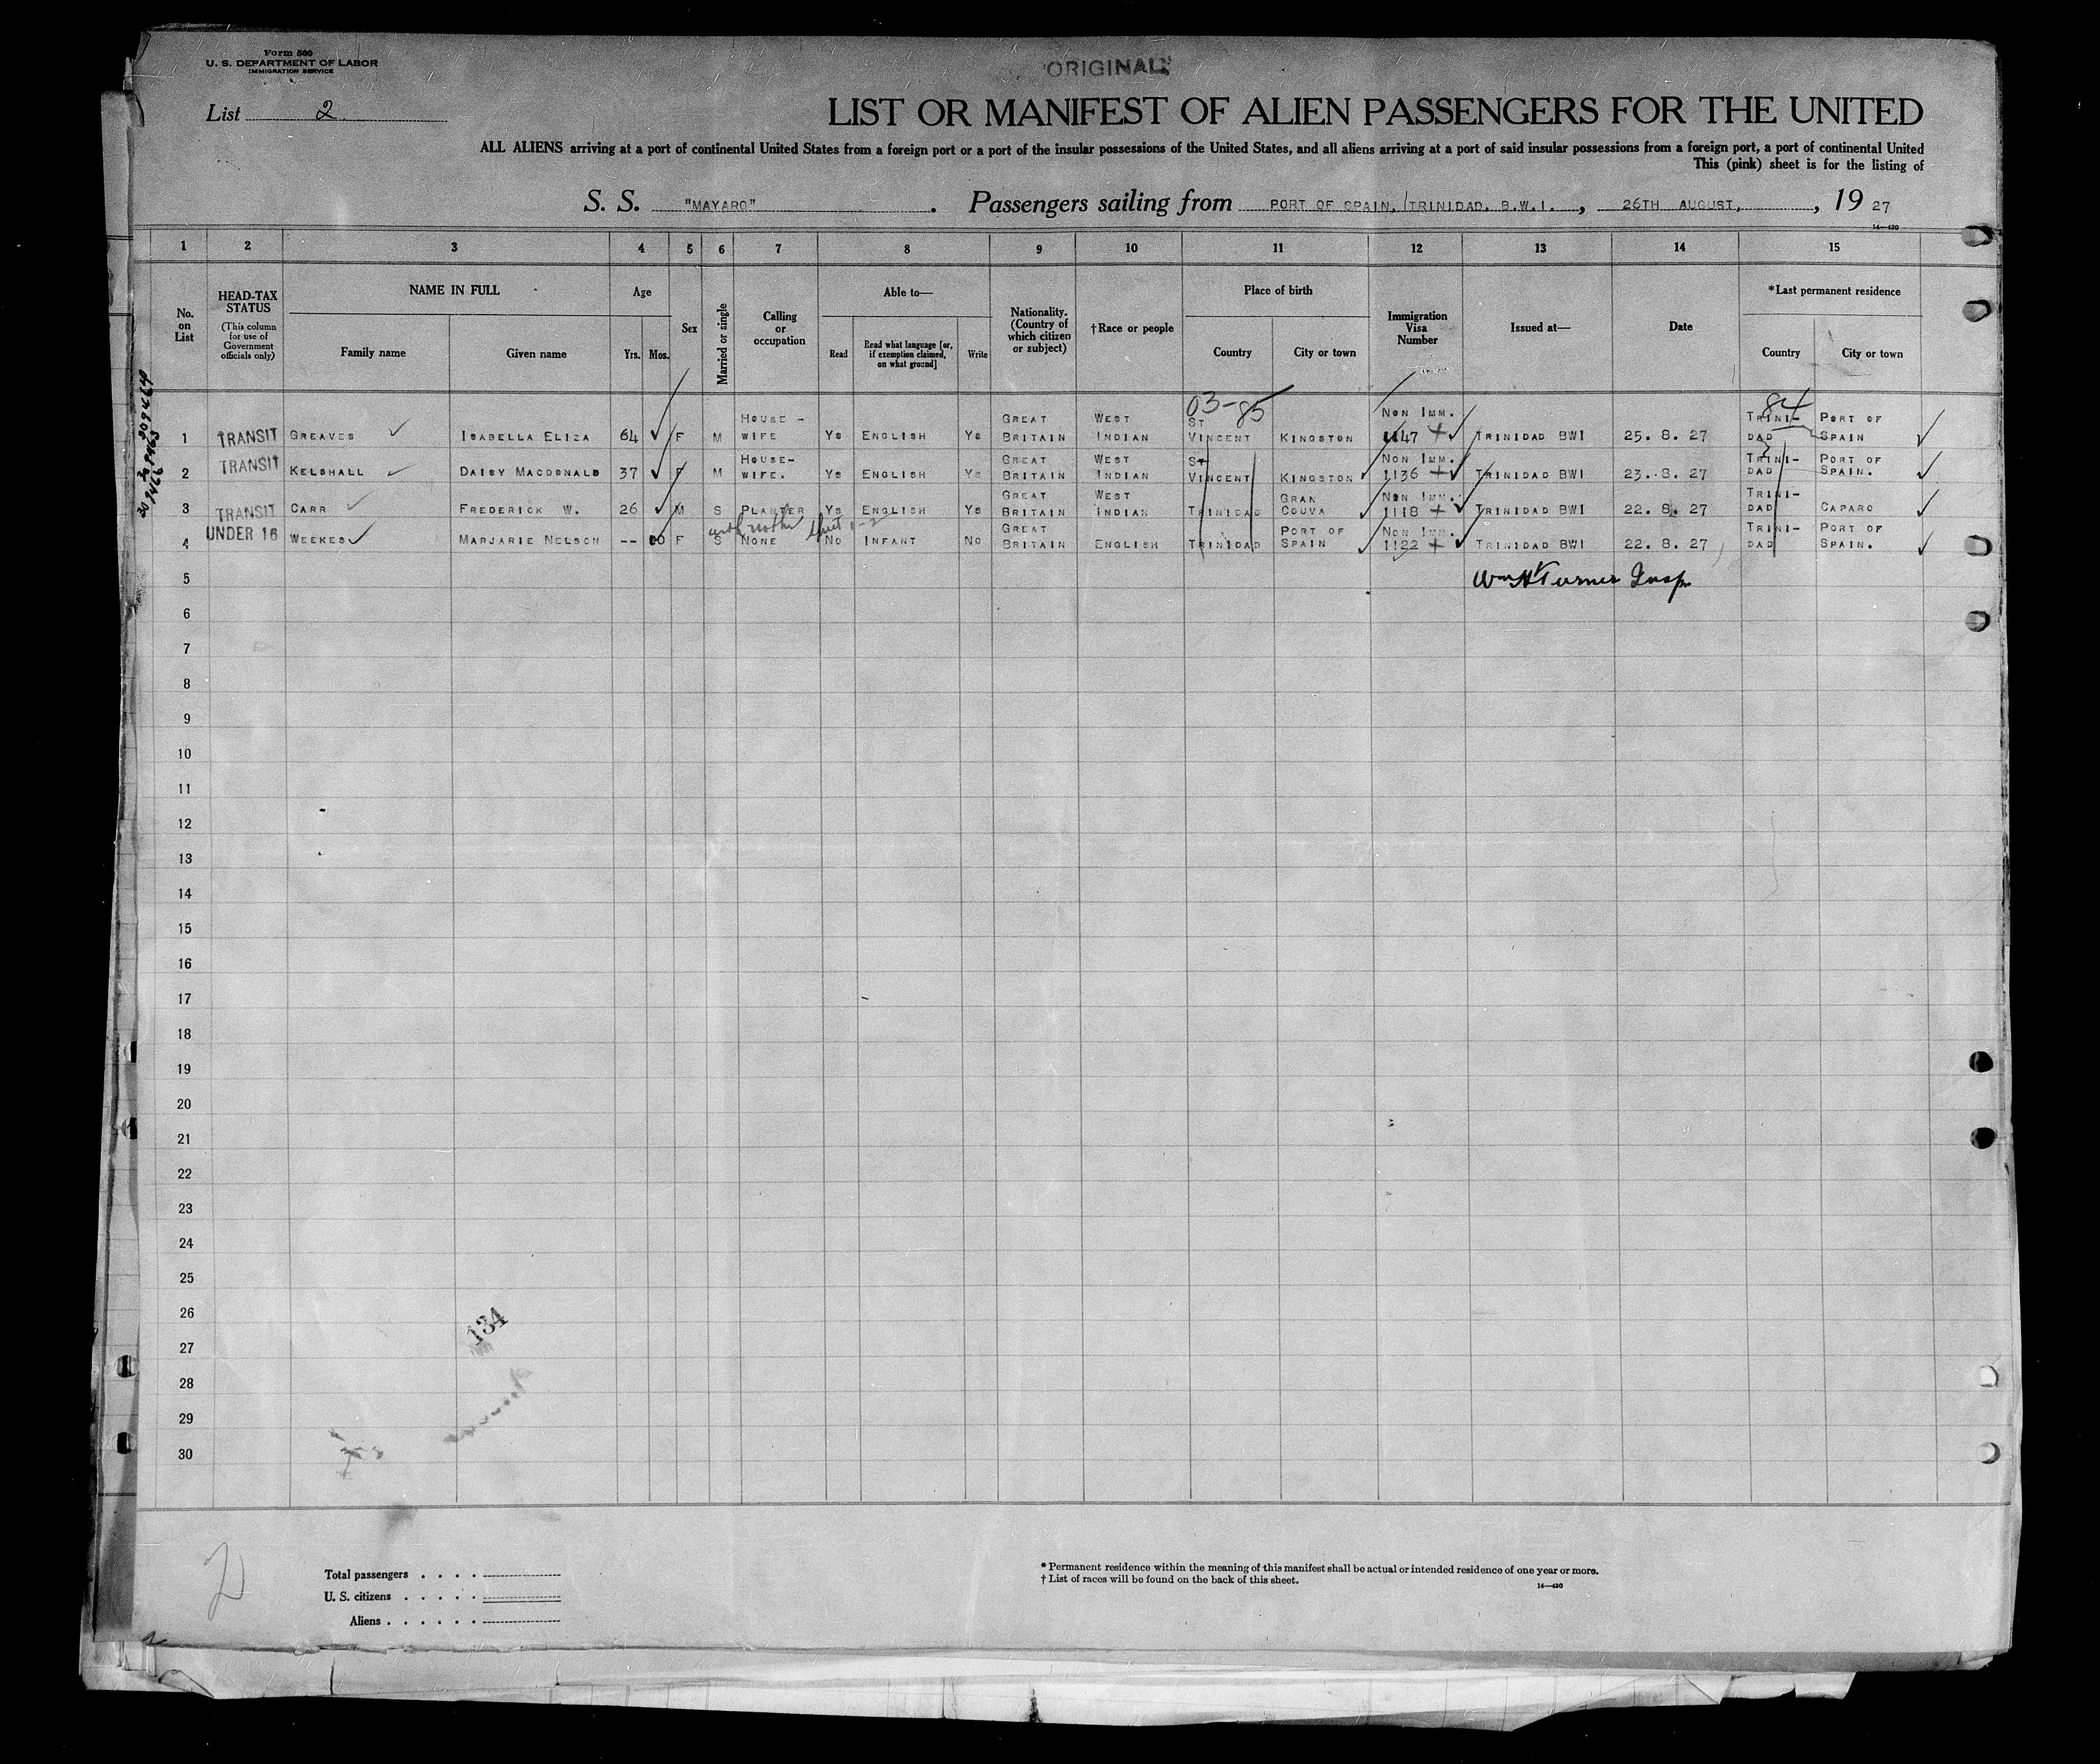 Form 500
U. S. DEPARTMENT OF LABOR
IMMIGRATION SERVICE
ORIGINAL
List 2
LIST OR MANIFEST OF ALIEN PASSENGERS FOR THE UNITED
ALL ALIENS arriving at a port of continental United States from a foreign port or a port of the insular possessions of the United States, and all aliens arriving at a port of said insular possessions from a foreign port, a port of continental United
This (pink) sheet is for the listing of
S. S. "MAYARO" . Passengers sailing from PORT OF SPAIN, TRINIDAD, B.W.I. , 26TH AUGUST, , 19 27
14—430
1 2 3 4 5 6 7 8 9 10 11 12 13 14 15
No. on List
HEAD-TAX STATUS
(This column for use of Government officials only)
NAME IN FULL
Family name
Given name
Age
Yrs.
Mos.
Sex
Married or single
Calling or occupation
Able to—
Read
Read what language [or, if exemption claimed, on what ground]
Write
Nationality. (Country of which citizen or subject)
†Race or people
Place of birth
Country
City or town
Immigration Visa Number
Issued at—
Date
*Last permanent residence
Country
City or town
03-85
84
1 TRANSIT GREAVES ISABELLA ELIZA 64 F M HOUSE-WIFE YS ENGLISH YS GREAT BRITAIN WEST INDIAN ST VINCENT KINGSTON NON IMM. 1147 TRINIDAD BWI 25.8.27 TRINI-DAD PORT OF SPAIN
2 TRANSIT KELSHALL DAISY MACDONALD 37 F M HOUSE-WIFE. YS ENGLISH YS GREAT BRITAIN WEST INDIAN ST VINCENT KINGSTON NON IMM. 1136 TRINIDAD BWI 23.8.27 TRINI-DAD PORT OF SPAIN.
3 TRANSIT CARR FREDERICK W. 26 M S PLANTER YS ENGLISH YS GREAT BRITAIN WEST INDIAN TRINIDAD GRAN COUVA NON IMM. 1118 TRINIDAD BWI 22.8.27 TRINI-DAD CAPARO
with mother
4 UNDER 16 WEEKES MARJARIE NELSON -- 10 F S NONE NO INFANT NO GREAT BRITAIN ENGLISH TRINIDAD PORT OF SPAIN NON IMM. 1122 TRINIDAD BWI 22.8.27 TRINI-DAD PORT OF SPAIN.
5
Wm H Turner Insp
6
7
8
9
10
11
12
13
14
15
16
17
18
19
20
21
22
23
24
25
26
134
27
28
29
30
2
Total passengers
U. S. citizens
Aliens
* Permanent residence within the meaning of this manifest shall be actual or intended residence of one year or more.
† List of races will be found on the back of this sheet.
14—430